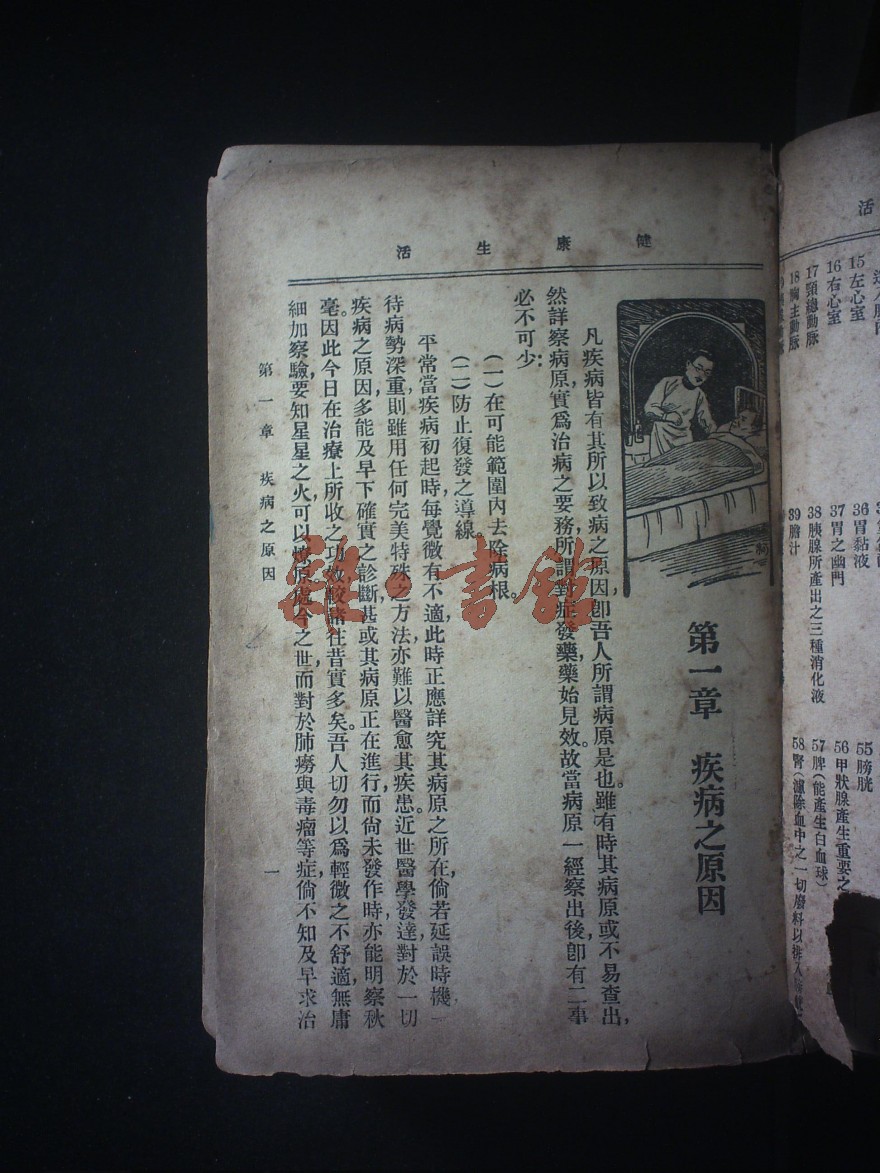 健康生活
第一章　疾病之原因
凡疾病皆有其所以致病之原因，卽吾人所謂病原是也。雖有時其病原或不易查出，
然詳察病原，實爲治病之要務，所謂對症發藥，藥始見效。故當病原一經察出後，卽有二事
必不可少：
（一）在可能範圍內去除病根。
（二）防止復發之導線。
平常當疾病初起時，每覺微有不適，此時正應詳究其病原之所在，倘若延誤時機，
待病勢深重，則雖用任何完美特殊之方法，亦難以醫愈其疾患。近世醫學發達，對於一切
疾病之原因，多能及早下確實之診斷，甚或其病原正在進行，而尙未發作時，亦能明察秋
毫。因此今日在治療上所收之功效，較諸往昔實多矣。吾人切勿以爲輕微之不舒適，無庸
細加察驗，要知星星之火，可以燎原，處今之世，而對於肺癆與毒瘤等症，倘不知及早求治
第一章　疾病之原因
一
雜·書館
活
15 左心室
16 右心室
17 頸總動脉
18 胸主動脉
36 胃黏液
37 胃之幽門
38 胰腺所產出之三種消化液
39 膽汁
55 膀胱
56 甲狀腺產生重要之
57 脾（能產生白血球）
58 腎（濾除血中之一切廢料以排入